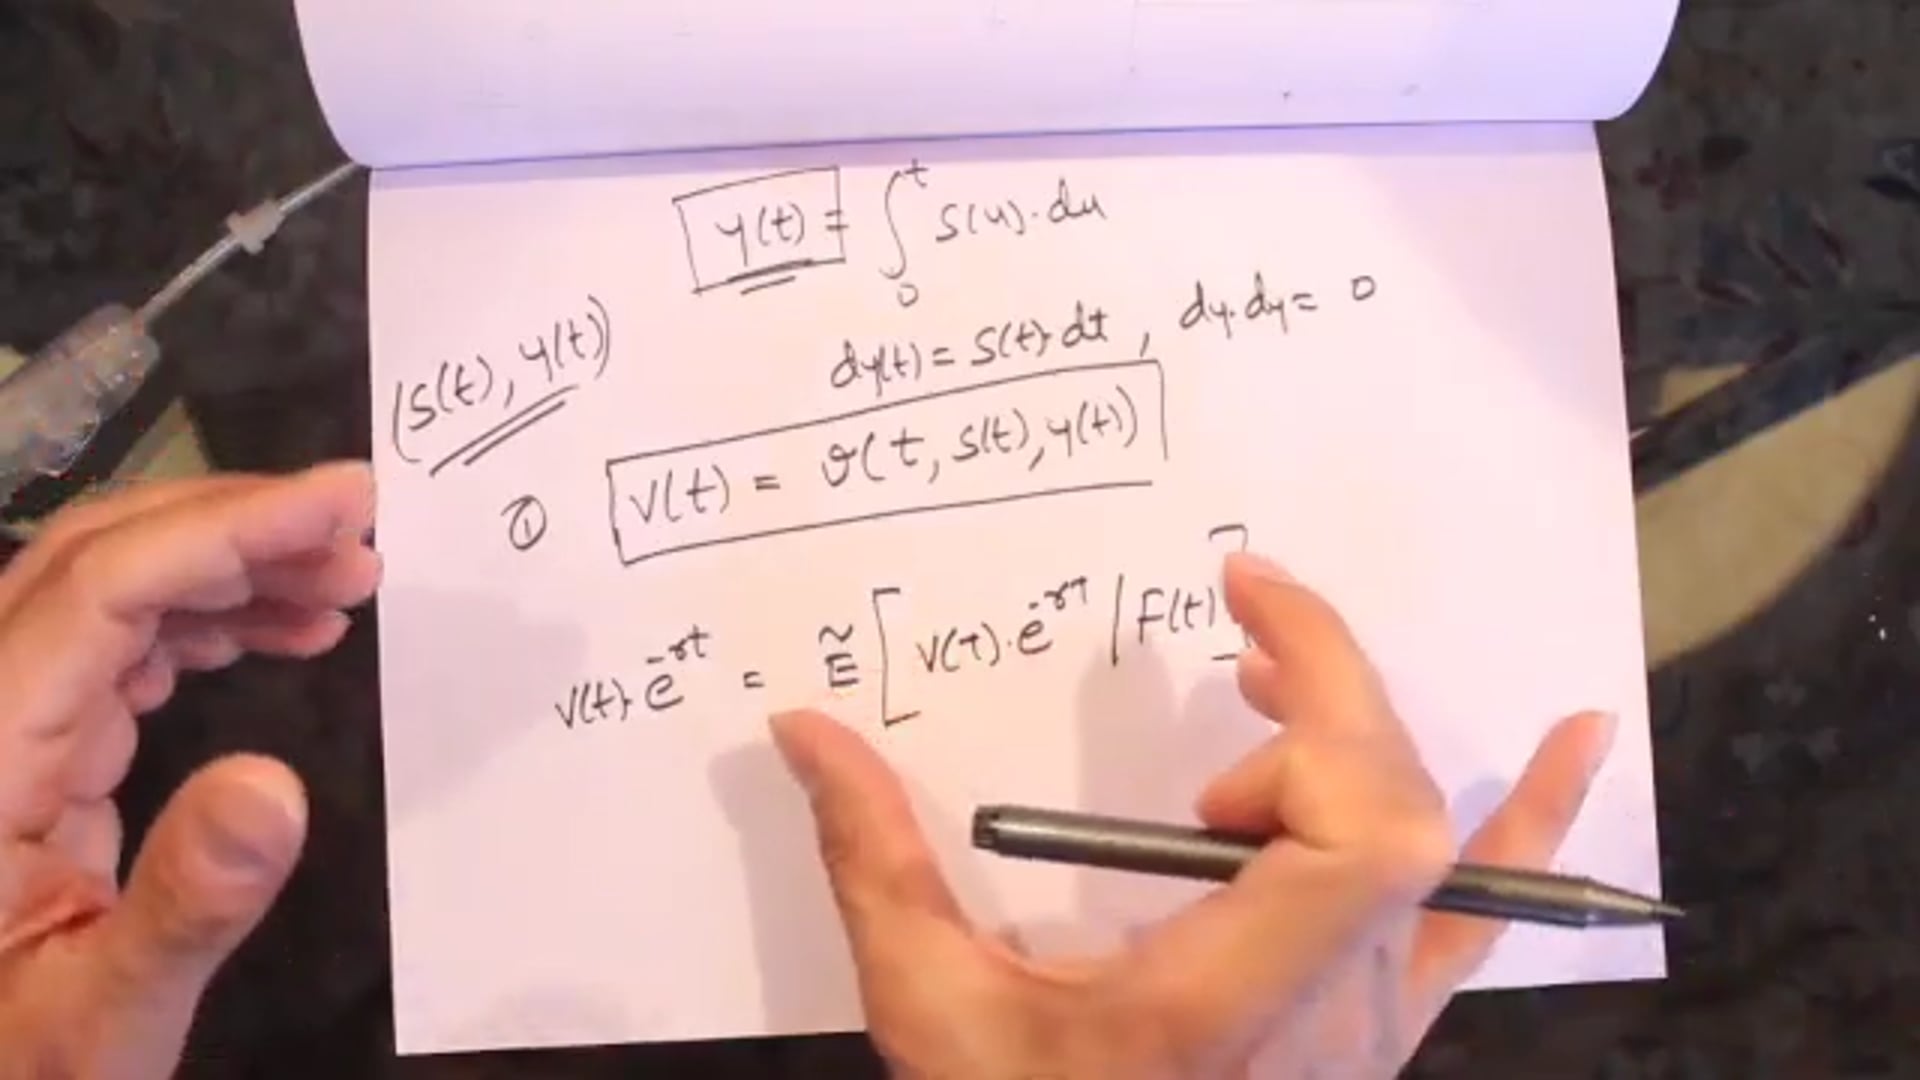 y(t) = ∫₀ᵗ S(u)·du
dy(t) = S(t)·dt , dy·dy = 0
(S(t), y(t))
① V(t) = v(t, S(t), y(t))
V(t)·e^-rt = Ẽ [ V(T)·e^-rT | F(t) ]